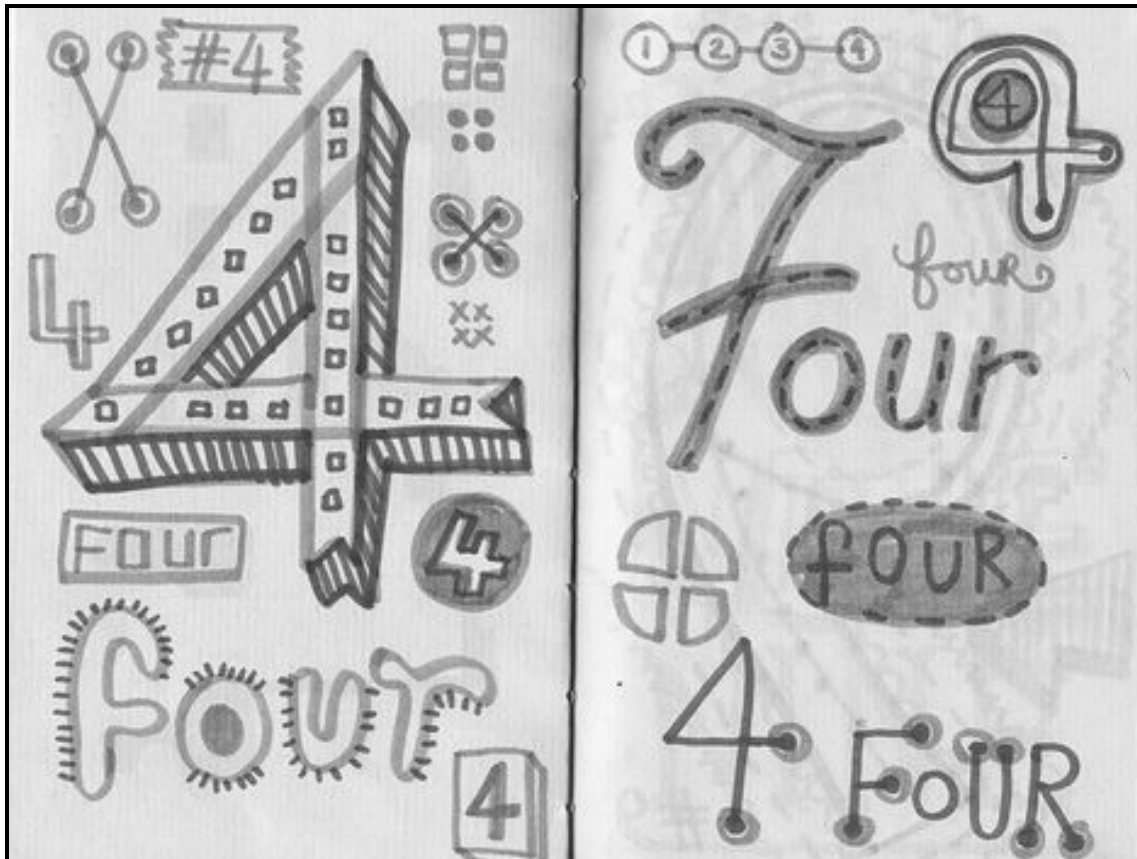 #4
4
4
FOUR
4
four
4
1 2 3 4
4
4
Four
four
fOUR
4 FOUR